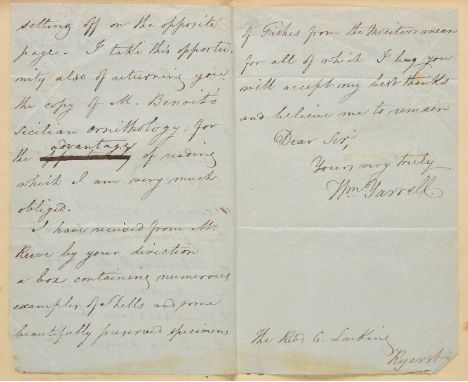 setting off on the opposite
page. I take this opportu
nity also of returning you
the copy of M. Benoit's
Sicilian ornithology, for
the advantage of reading
which I am very much
obliged.
I have received from Mr
Reeve by your direction
a box containing numerous
examples of Shells and some
beautifully preserved specimens
of Fishes from the Mediterranean
for all of which I beg you
will accept my best thanks
and believe me to remain
Dear Sir,
Yours very truly
Wm Yarrell.
The Revd. C. Larking
Ryarsh